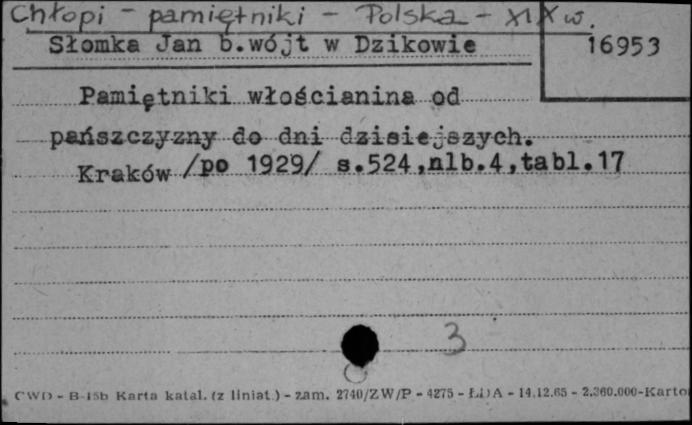 Chłopi - pamiętniki - Polska - XIX w.
Słomka Jan b.wójt w Dzikowie
16953
Pamiętniki włościanina od
pańszczyzny do dni dzisiejszych.
Kraków /po 1929/ s.524,nlb.4,tabl.17
3
CWD - B-15b Karta katal. (z liniat.) - zam. 2740/ZW/P - 4275 - ŁDA - 14.12.65 - 2.360.000-Karto